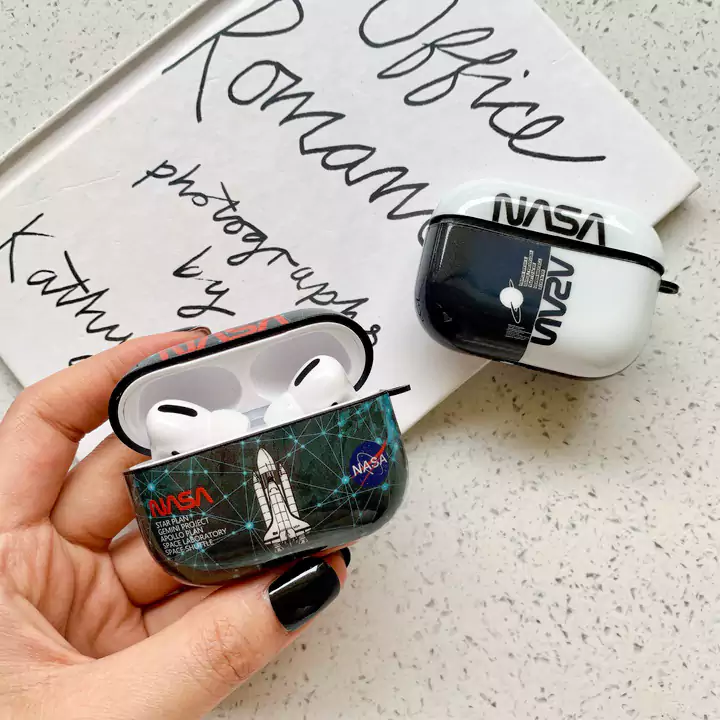 Office
Romance
photographs
by
Kathy
NASA
NASA
NASA
NASA
NASA
STAR PLAN
GEMINI PROJECT
APOLLO PLAN
SPACE LABORATORY
SPACE SHUTTLE